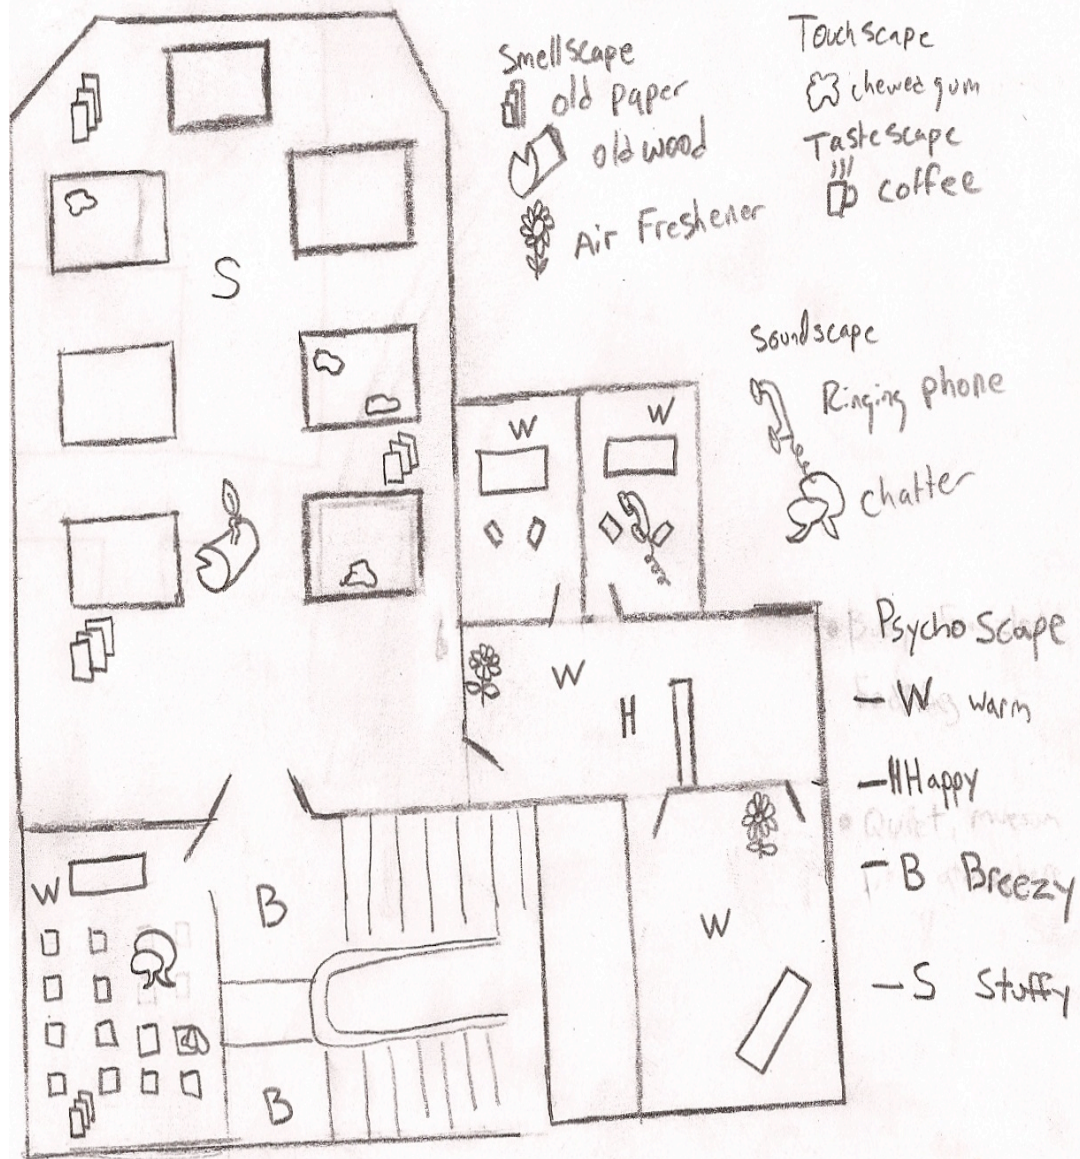 Smellscape
old paper
old wood
Air Freshener
Touchscape
chewed gum
Tastescape
coffee
Soundscape
Ringing phone
chatter
Psychoscape
- W warm
- H Happy
- B Breezy
- S Stuffy
Quiet,
S
W
W
W
H
W
B
W
B